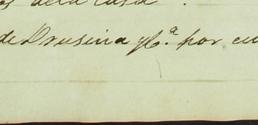 dela Casa.
de Drusina y Ca. por cu